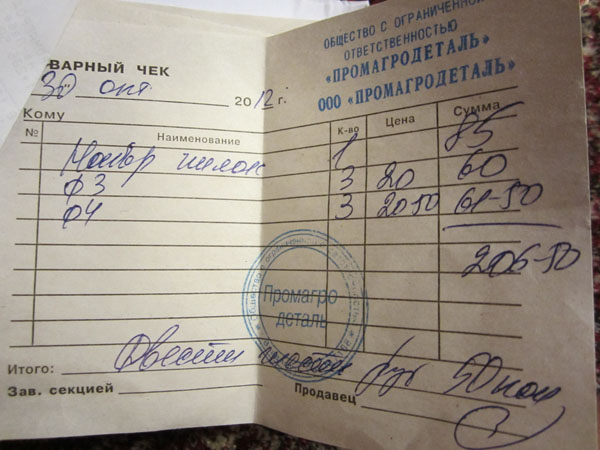 ОБЩЕСТВО С ОГРАНИЧЕННОЙ
ОТВЕТСТВЕННОСТЬЮ
«ПРОМАГРОДЕТАЛЬ»
ООО «ПРОМАГРОДЕТАЛЬ»
ВАРНЫЙ ЧЕК
30 окт 2012 г.
Кому
№ Наименование К-во Цена Сумма
Набор пилок 1 85
Ф3 3 20 60
Ф4 3 20 50 61-50
206-50
Промагро
деталь
Итого: Двести шесть руб 50 коп
Зав. секцией Продавец